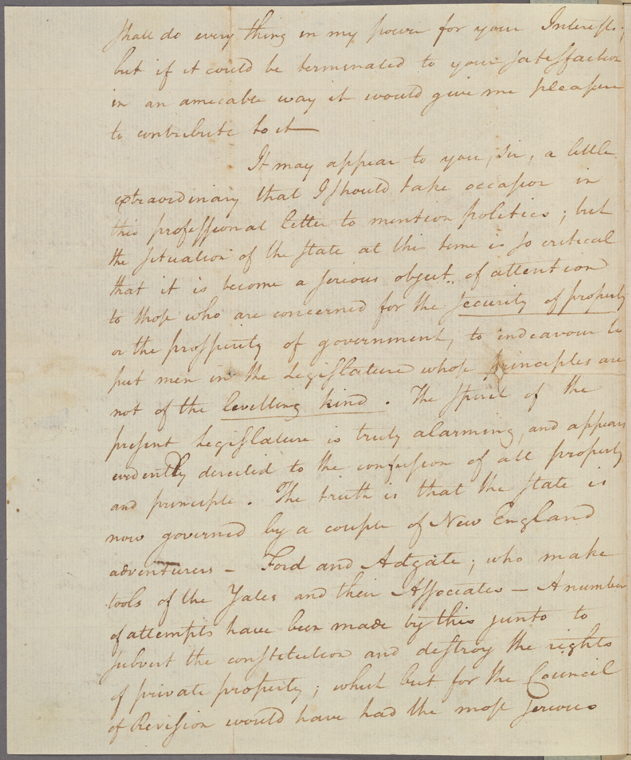 shall do every thing in my power for your Interest;
but if it could be terminated to your satisfaction
in an amicable way it would give me pleasure
to contribute to it—
It may appear to you, Sir, a little
extraordinary that I should take occasion in
this professional letter to mention politics; but
the situation of the state at this time is so critical
that it is become a serious object of attention
to those who are concerned for the security of property
or the prosperity of government, to endeavour to
put men in the Legislature whose principles are
not of the levelling kind. The spirit of the
present Legislature is truly alarming, and appears
evidently directed to the confusion of all property
and principle. The truth is that the state is
now governed by a couple of New England
adventurers — Ford and Adgate; who make
tools of the Yates and their Associates — A number
of attempts have been made by this junto to
subvert the constitution and destroy the rights
of private property; which but for the Council
of Revision would have had the most serious